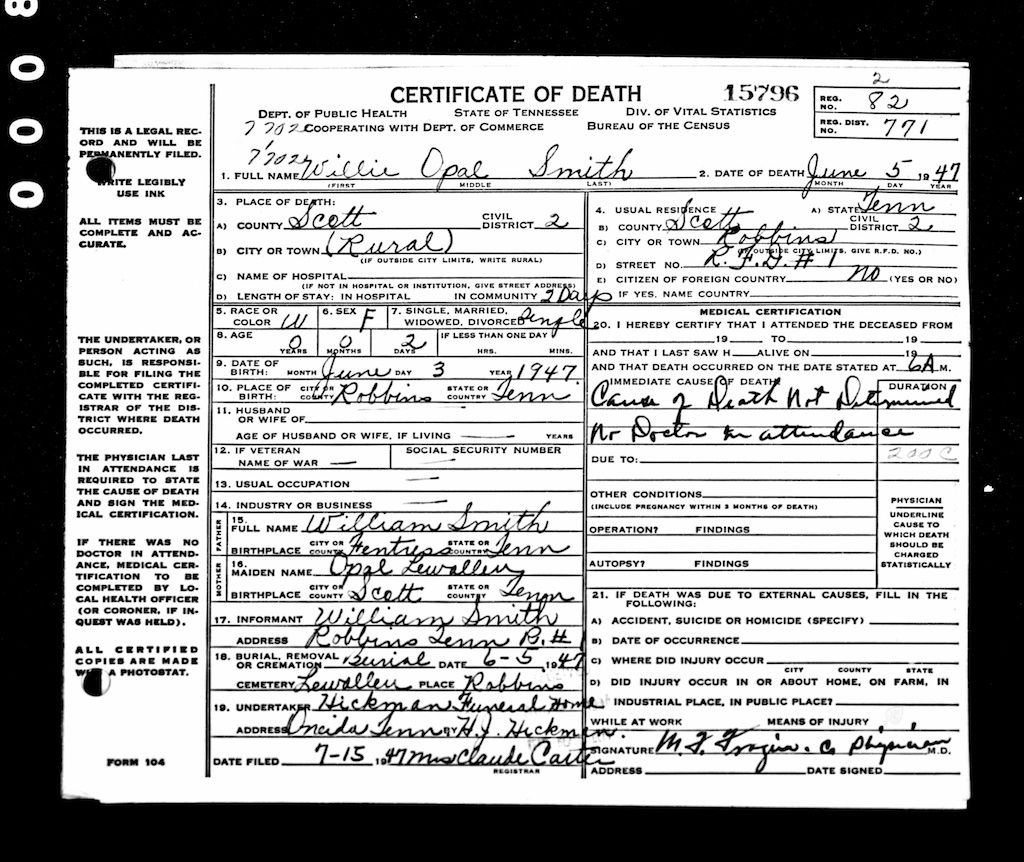 8000
CERTIFICATE OF DEATH
15796
REG. NO. 2 82
REG. DIST. NO. 771
DEPT. OF PUBLIC HEALTH STATE OF TENNESSEE DIV. OF VITAL STATISTICS
COOPERATING WITH DEPT. OF COMMERCE BUREAU OF THE CENSUS
1. FULL NAME Willie Opal Smith
(FIRST) MIDDLE LAST)
2. DATE OF DEATH June 5 1947
MONTH DAY YEAR
THIS IS A LEGAL REC-
ORD AND WILL BE
PERMANENTLY FILED.
WRITE LEGIBLY
USE INK
ALL ITEMS MUST BE
COMPLETE AND AC-
CURATE.
THE UNDERTAKER, OR
PERSON ACTING AS
SUCH, IS RESPONSI-
BLE FOR FILING THE
COMPLETED CERTIFI-
CATE WITH THE REG-
ISTRAR OF THE DIS-
TRICT WHERE DEATH
OCCURRED.
THE PHYSICIAN LAST
IN ATTENDANCE IS
REQUIRED TO STATE
THE CAUSE OF DEATH
AND SIGN THE MED-
ICAL CERTIFICATION.
IF THERE WAS NO
DOCTOR IN ATTEND-
ANCE, MEDICAL CER-
TIFICATION TO BE
COMPLETED BY LO-
CAL HEALTH OFFICER
(OR CORONER, IF IN-
QUEST WAS HELD).
ALL CERTIFIED
COPIES ARE MADE
A PHOTOSTAT.
FORM 104
3. PLACE OF DEATH:
A) COUNTY Scott CIVIL DISTRICT 2
B) CITY OR TOWN (Rural)
(IF OUTSIDE CITY LIMITS, WRITE RURAL)
C) NAME OF HOSPITAL
(IF NOT IN HOSPITAL OR INSTITUTION, GIVE STREET ADDRESS)
D) LENGTH OF STAY: IN HOSPITAL IN COMMUNITY 2 Days
5. RACE OR COLOR W 6. SEX F 7. SINGLE, MARRIED, WIDOWED, DIVORCED Single
8. AGE 0 YEARS 0 MONTHS 2 DAYS IF LESS THAN ONE DAY HRS. MINS.
9. DATE OF BIRTH: MONTH June DAY 3 YEAR 1947
10. PLACE OF BIRTH: CITY OR COUNTY Robbins STATE OR COUNTRY Tenn
11. HUSBAND OR WIFE OF
AGE OF HUSBAND OR WIFE, IF LIVING YEARS
12. IF VETERAN NAME OF WAR SOCIAL SECURITY NUMBER
13. USUAL OCCUPATION
14. INDUSTRY OR BUSINESS
FATHER 15. FULL NAME William Smith
BIRTHPLACE CITY OR COUNTY Fentress STATE OR COUNTRY Tenn
MOTHER 16. MAIDEN NAME Opal Lewallen
BIRTHPLACE CITY OR COUNTY Scott STATE OR COUNTRY Tenn
17. INFORMANT William Smith
ADDRESS Robbins Tenn R. # 1
18. BURIAL, REMOVAL OR CREMATION Burial DATE 6-5, 1947
CEMETERY Lewallen PLACE Robbins
19. UNDERTAKER Hickman Funeral Home
ADDRESS Oneida Tenn BY H. J. Hickman.
DATE FILED 7-15 1947 Mrs Claude Carter
REGISTRAR
4. USUAL RESIDENCE A) STATE Tenn
B) COUNTY Scott CIVIL DISTRICT 2
C) CITY OR TOWN Robbins
(IF OUTSIDE CITY LIMITS, GIVE R.F.D. NO.)
D) STREET NO. R. F. D. # 1
E) CITIZEN OF FOREIGN COUNTRY No (YES OR NO)
IF YES, NAME COUNTRY
MEDICAL CERTIFICATION
20. I HEREBY CERTIFY THAT I ATTENDED THE DECEASED FROM
19 TO 19
AND THAT I LAST SAW H ALIVE ON 19
AND THAT DEATH OCCURRED ON THE DATE STATED AT 6A M.
IMMEDIATE CAUSE OF DEATH DURATION
Cause of Death Not Determined
No Doctor in attendance
DUE TO: 200C
OTHER CONDITIONS
(INCLUDE PREGNANCY WITHIN 3 MONTHS OF DEATH)
OPERATION? FINDINGS
AUTOPSY? FINDINGS
PHYSICIAN
UNDERLINE
CAUSE TO
WHICH DEATH
SHOULD BE
CHARGED
STATISTICALLY
21. IF DEATH WAS DUE TO EXTERNAL CAUSES, FILL IN THE
FOLLOWING:
A) ACCIDENT, SUICIDE OR HOMICIDE (SPECIFY)
B) DATE OF OCCURRENCE
C) WHERE DID INJURY OCCUR
CITY COUNTY STATE
D) DID INJURY OCCUR IN OR ABOUT HOME, ON FARM, IN
INDUSTRIAL PLACE, IN PUBLIC PLACE?
WHILE AT WORK MEANS OF INJURY
SIGNATURE M. F. Frazier. Co Physician M.D.
ADDRESS DATE SIGNED